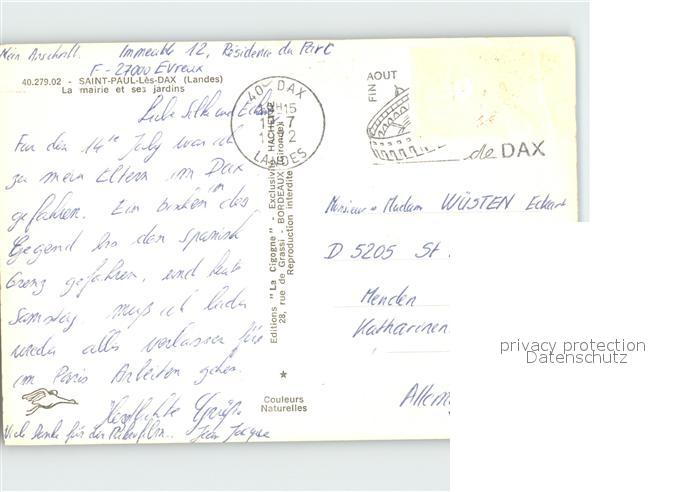 Mein Anschrift. Immeuble 12, Résidence du Parc
F-27000 Evreux
40.279.02 - SAINT-PAUL-Lès-DAX (Landes)
La mairie et ses jardins
Liebe Silke und
Für die 14te July war ich
zu mein Eltern im Dax
gefahren. Ein bischen im des
Gegend bis den spanisch
Grenz gefahren, und heute
Samstag muß ich leider
wieder alles verlassen für
im Paris Arbeiten gehen.
Herzlichte Grüße
Viele Danke für der
Jean Jacque
Editions "La Cigogne" - Exclusivité HACHETTE
28, rue de Grassi - BORDEAUX (Gironde)
Reproduction interdite
★
Couleurs
Naturelles
40 - DAX
LANDES
FIN AOUT
de DAX
Monsieur e Madam WÜSTEN Eckart
D 5205 St
Menden
Katharinen
Allem
privacy protection
Datenschutz